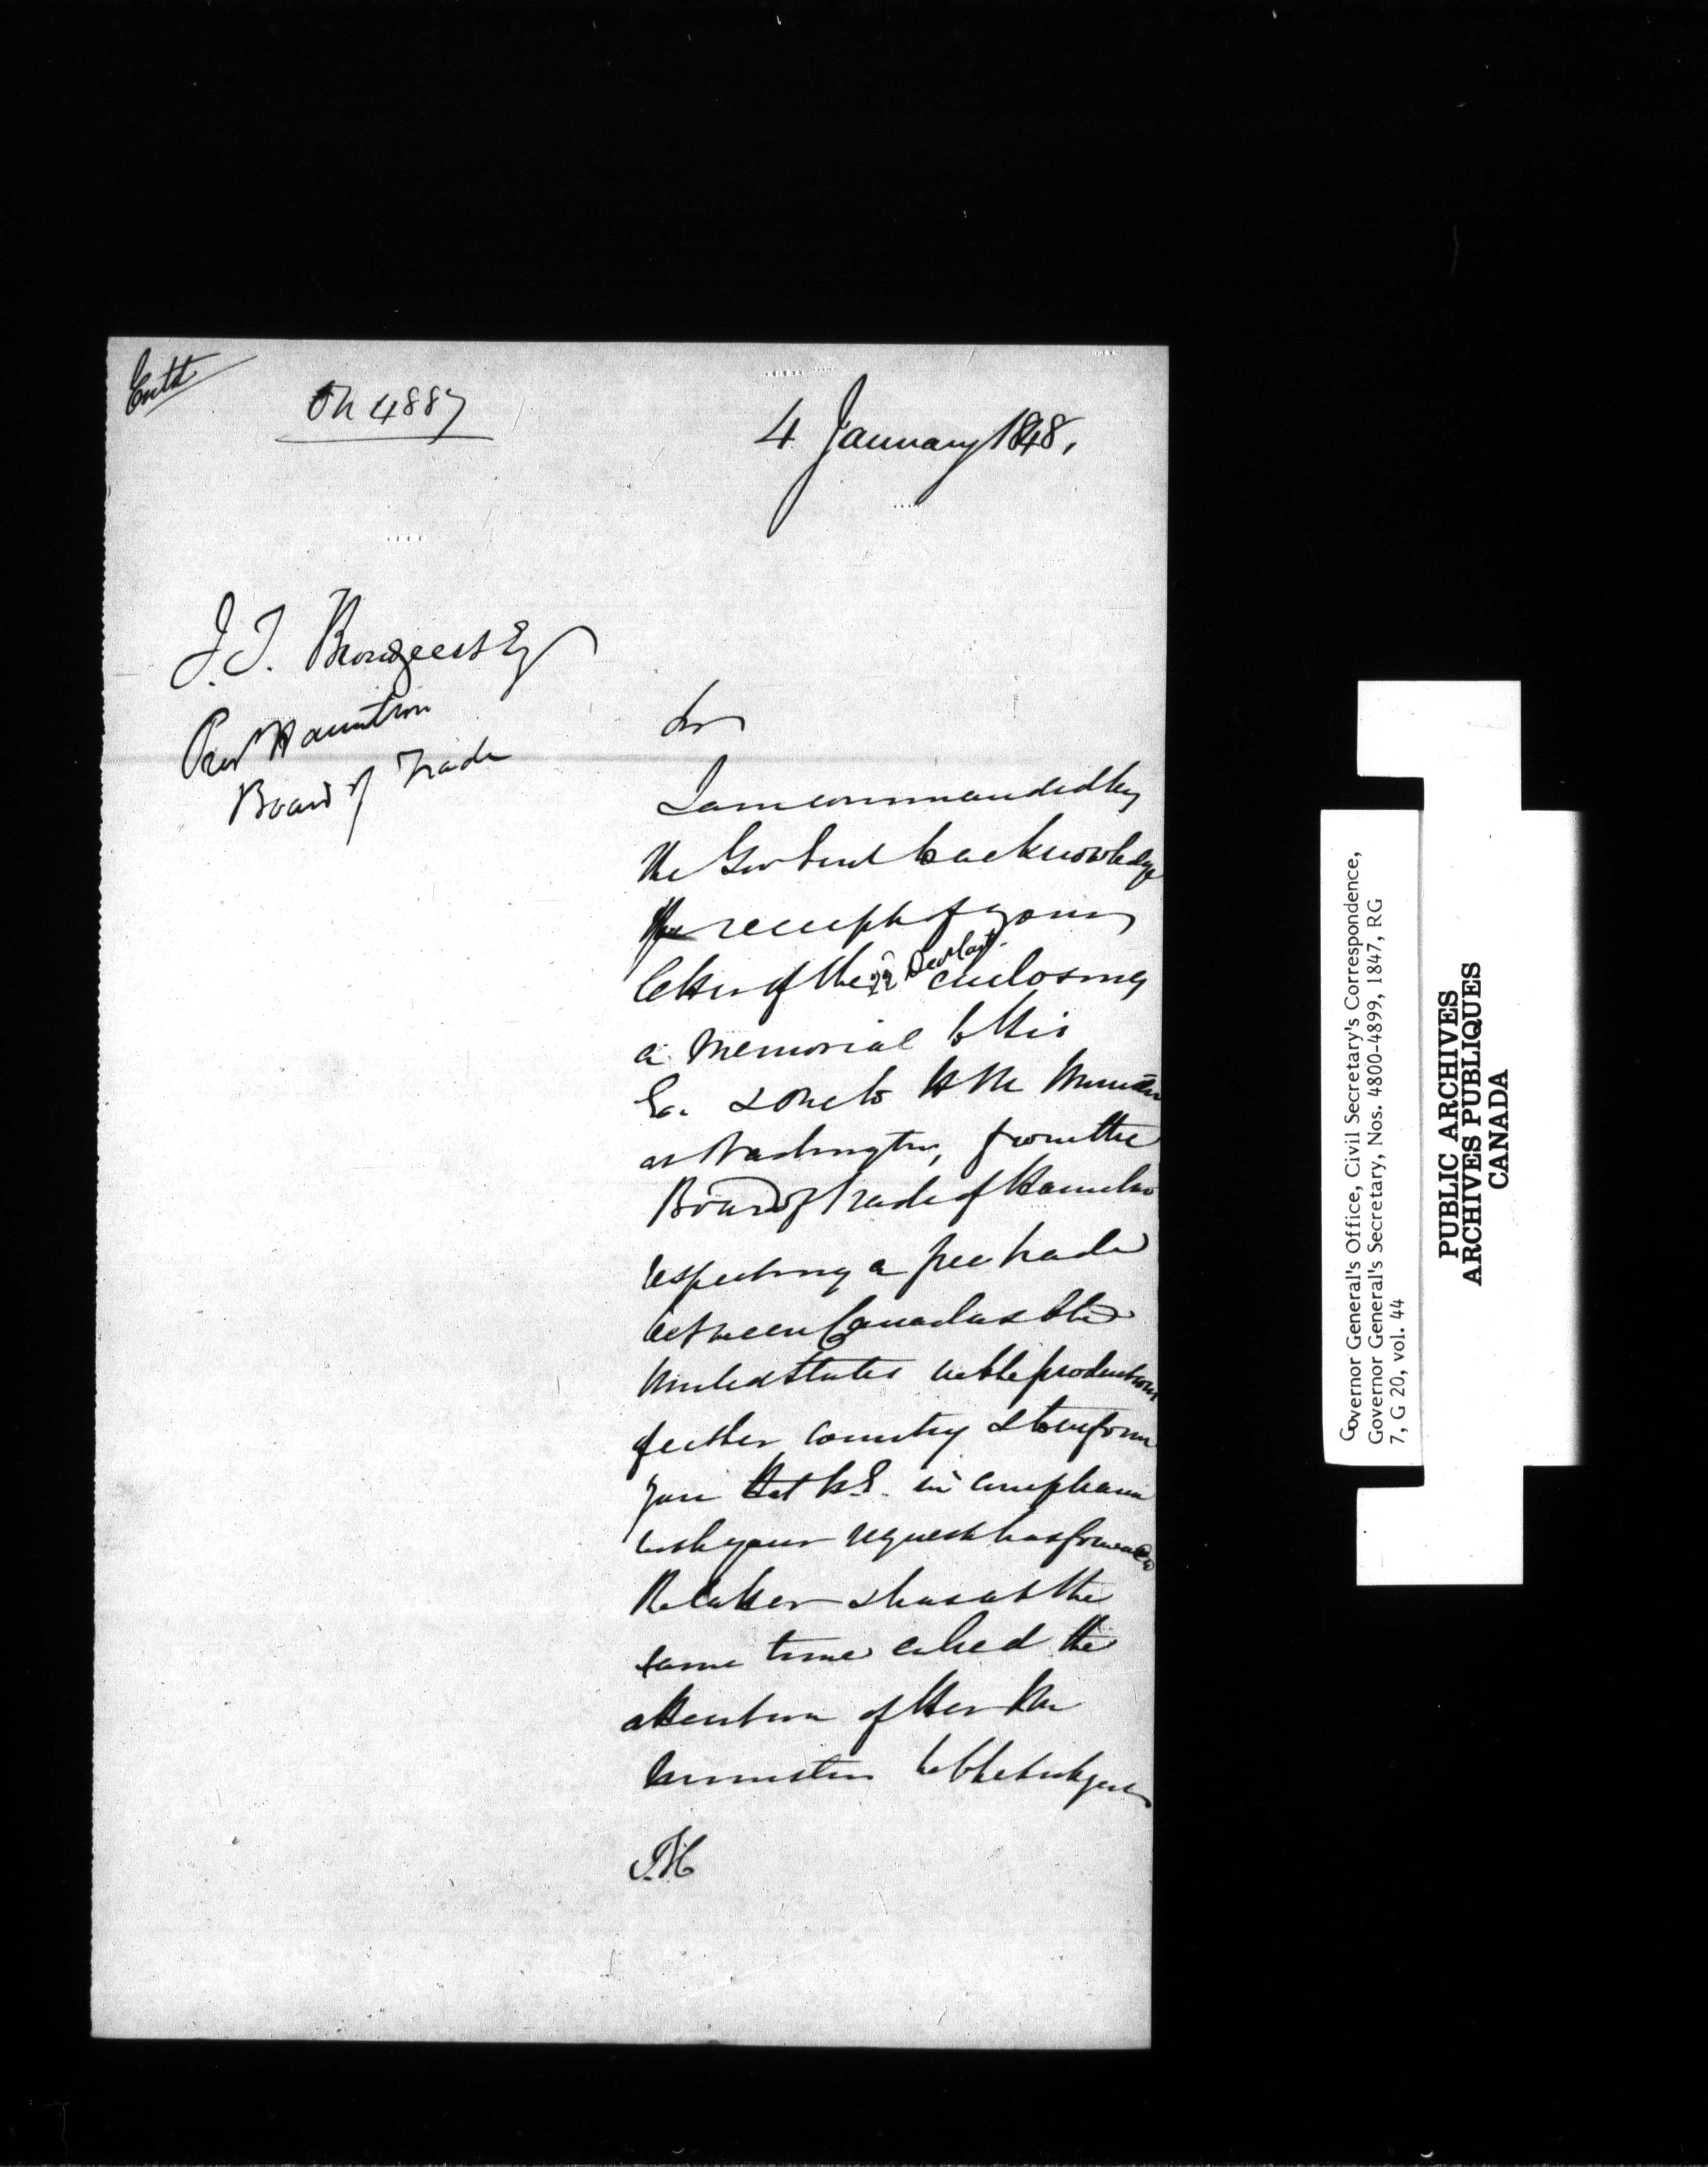 Entd
On 4887
4 January 1848.
J. T. Brondgeest Esq
Pres Hamilton
Board of Trade
Sir
I am commanded by
the Gov Genl to acknowledge
the receipt of your
letter of the 22 Dec last enclosing
a memorial to His
Ex. & one to H M Minister
at Washington, from the
Board of Trade of Hamilton
respecting a free trade
between Canada & the
United States in the productions
of either country & to inform
you that H.E. in compliance
with your request has forwarded
the latter & has at the
same time called the
attention of Her Maj
Minister to the subject
T.H
Governor General's Office, Civil Secretary's Correspondence,
Governor General's Secretary, Nos. 4800-4899, 1847, RG
7, G 20, vol. 44
PUBLIC ARCHIVES
ARCHIVES PUBLIQUES
CANADA